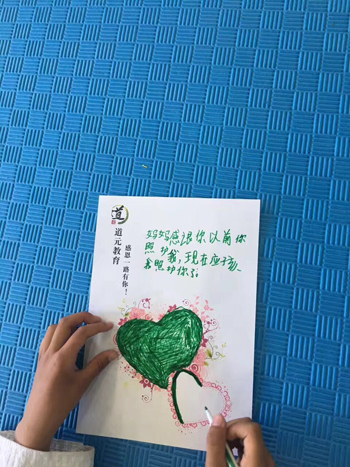 道
道元教育
感恩一路有你!
妈妈感谢你以前你
照护我,现在应该
我照护你了